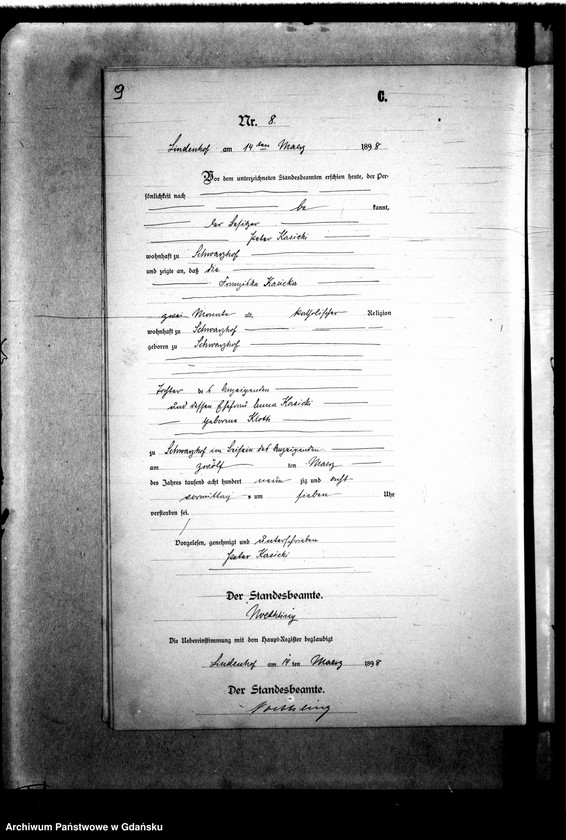 9
C.
Nr. 8.
Lindenhof am 14 ten Maerz 1898
Vor dem unterzeichneten Standesbeamten erschien heute, der Per-
sönlichkeit nach
be kannt,
der Besitzer
Peter Kasicki
wohnhaft zu Schwarzhof
und zeigte an, daß die
Franziska Kasicka
zwei Monate alt, katholischer Religion
wohnhaft zu Schwarzhof
geboren zu Schwarzhof
Tochter des Anzeigenden
und dessen Ehefrau Anna Kasicki
geborene Kloth
zu Schwarzhof im Beisein des Anzeigenden
am zwölf ten Maerz
des Jahres tausend acht hundert neun zig und acht
vormittag s um sieben Uhr
verstorben sei.
Vorgelesen, genehmigt und unterschrieben
Peter Kasicki
Der Standesbeamte.
Die Uebereinstimmung mit dem Haupt-Register beglaubigt
Lindenhof am 14 ten Maerz 1898
Der Standesbeamte.
Archiwum Państwowe w Gdańsku